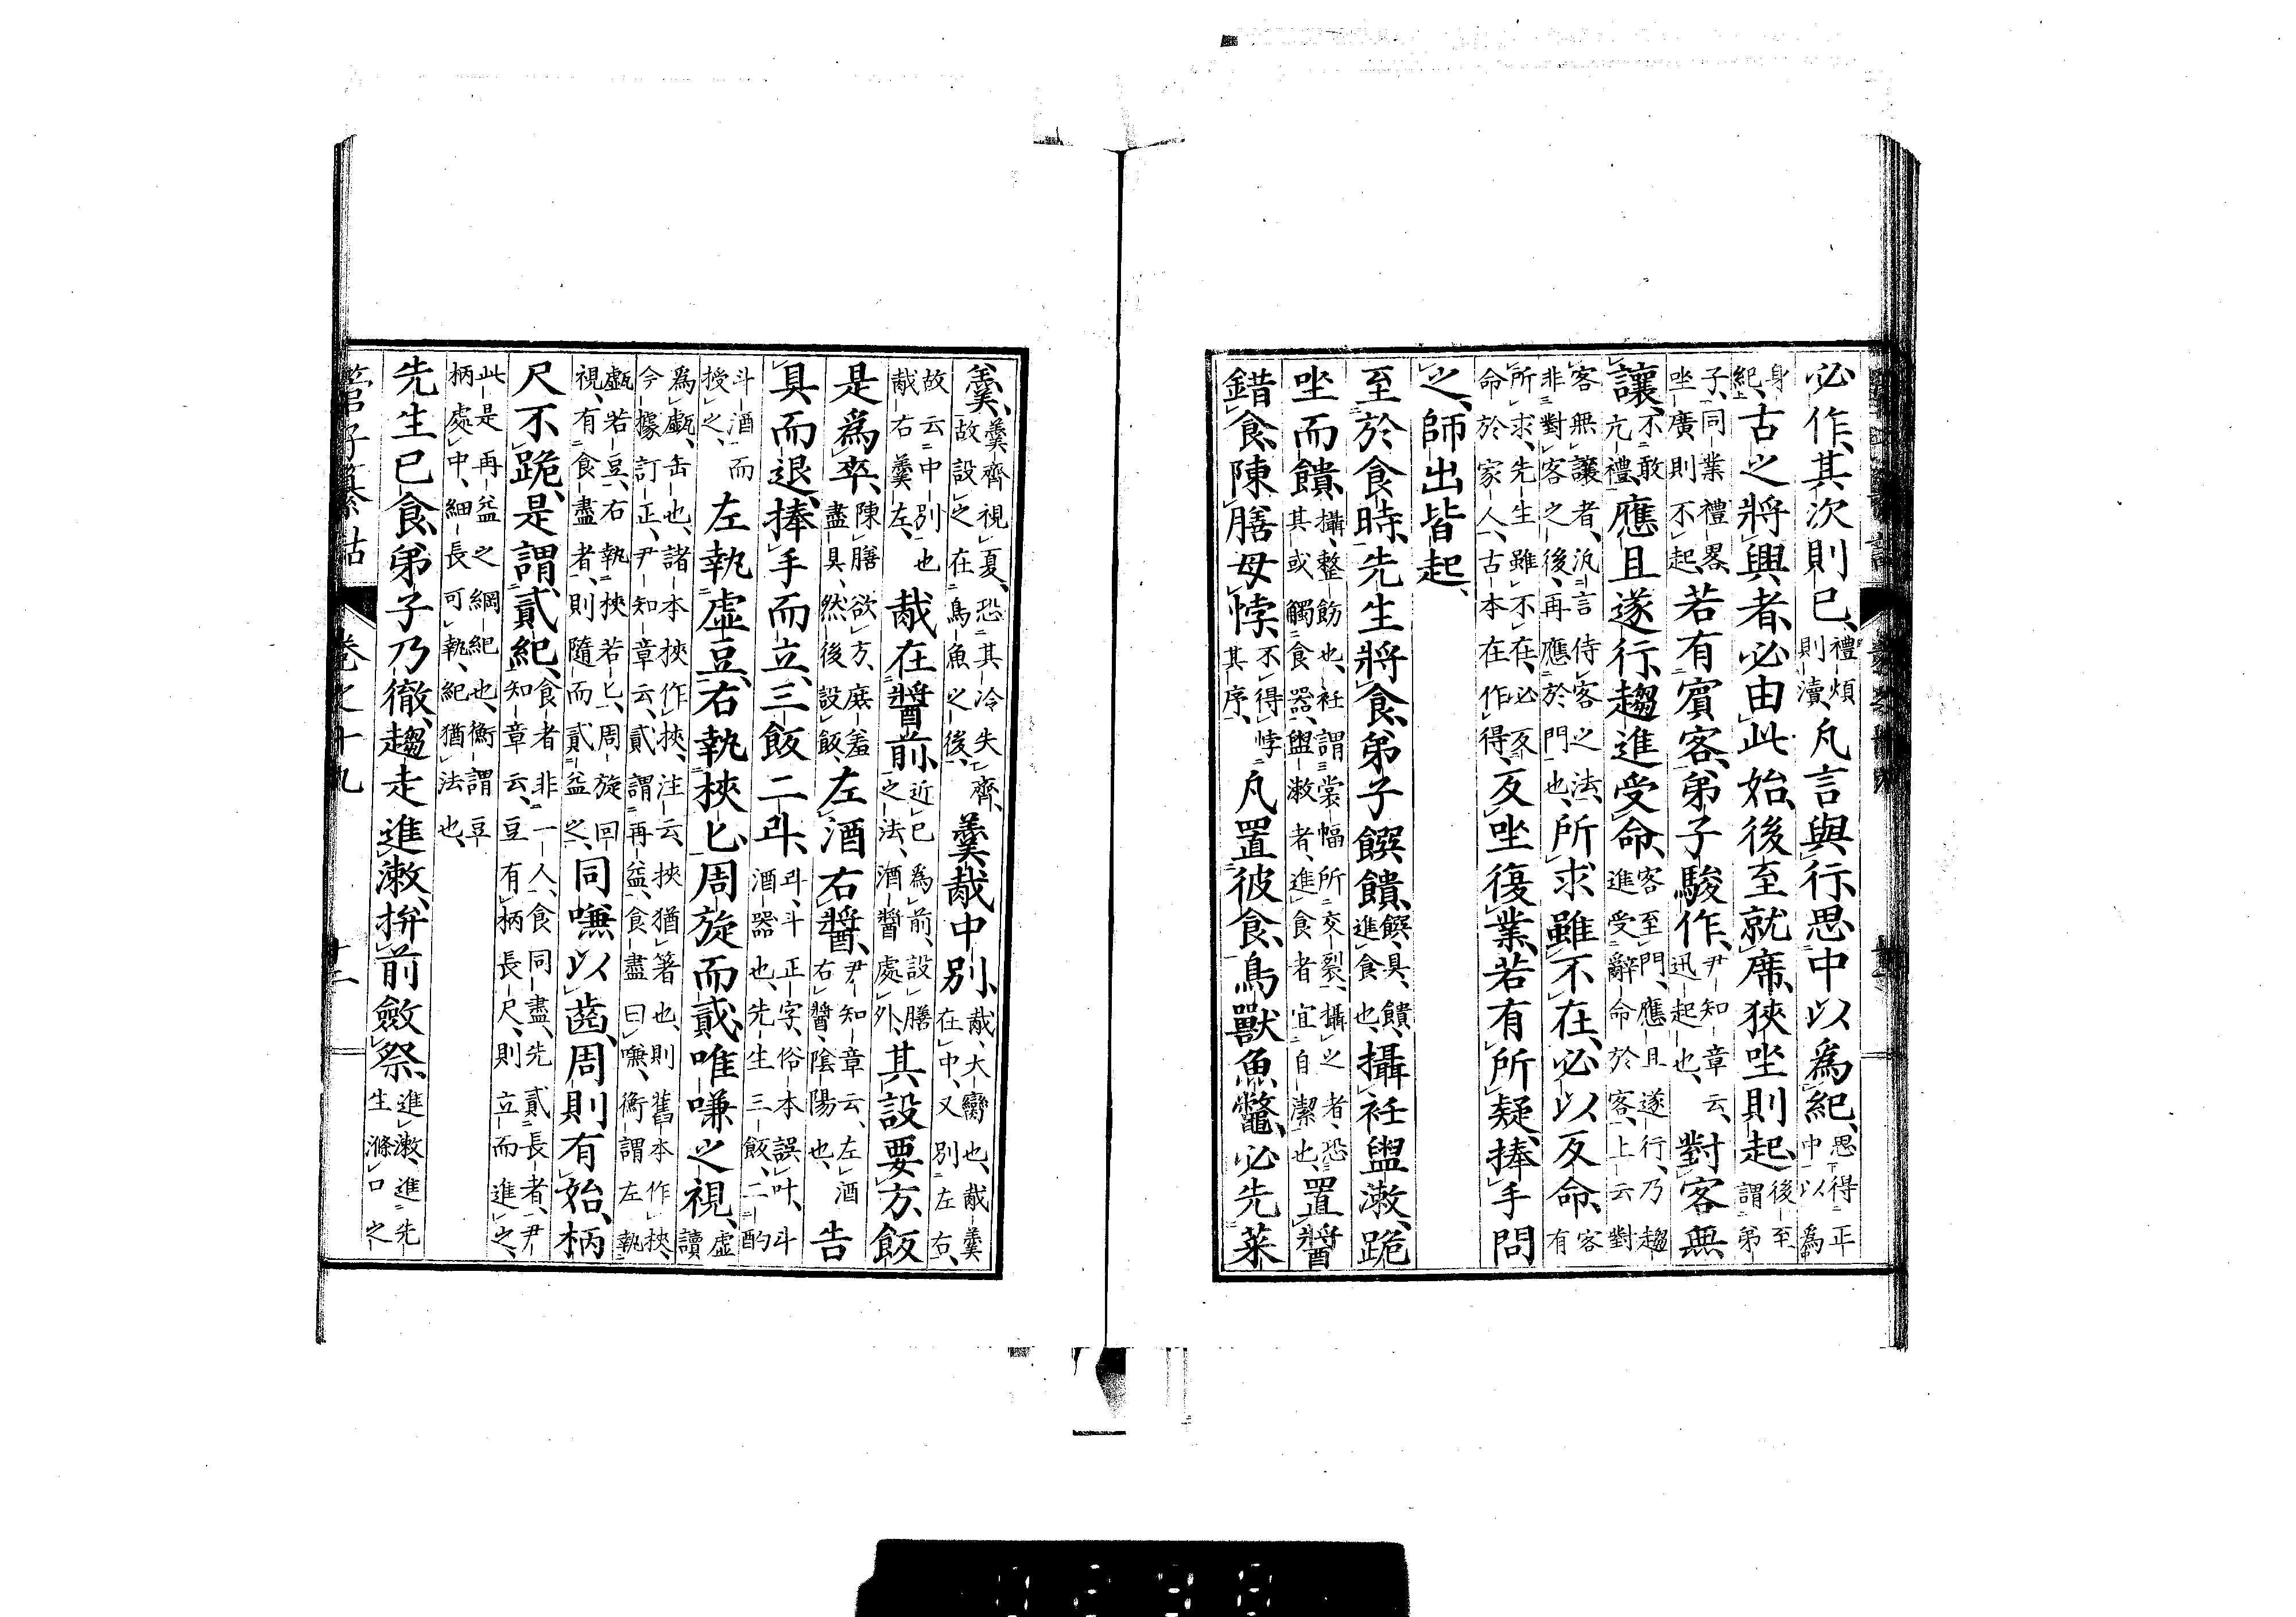 必作、其次則已、禮煩則瀆、凡言與行、思中以爲紀、思得正中以爲
身紀、古之將興者、必由此始、後至就席、狹坐則起、後至謂弟
子、同業禮畧、坐廣則不起、若有賓客、弟子駿作、尹知章云、迅起也、對客無
讓、不敢亢禮、應且遂行、趨進受命、客至門、應且遂行、乃趨進受辭命於客、上云對
客無讓者、汎言侍客之法、非對客之後、再應於門也、所求雖不在、必以反命、客有
所求、先生雖不在、必反命於家人、古本在作得、反坐復業、若有所疑、捧手問
之、師出皆起、
至於食時、先生將食、弟子饌饋、饌、具、饋、進食也、攝衽盥漱、跪
坐而饋、攝、整飭也、衽謂裳幅所交裂、攝之者、恐其或觸食器、盥漱者、進食者宜自潔也、置醬
錯食、陳膳毋悖、不得悖其序、凡置彼食、鳥獸魚鼈、必先菜
羹、羹齊視夏、恐其冷失齊、故設之在鳥魚之後、羹胾中別、胾、大臠也、胾羹在中、又別左右、
故云中別也胾右羹左、胾在醬前、近已爲前、設膳之法、酒醬處外、其設要方、飯
是爲卒、陳膳欲方、庶羞盡具、然後設飯、左酒右醬、尹知章云、左酒右醬、陰陽也、告
具而退、捧手而立、三飯二斗、斗、斗正字、俗本誤叶、斗酒器也、先生三飯、二酌
斗酒而授之、左執虛豆、右執挾匕、周旋而貳、唯嗛之視、虛讀
爲甗、甗、缶也、諸本挾作挾、注云、挾猶箸也、則舊本作梜、今據訂正、尹知章云、貳謂再益、食盡曰嗛、衡謂左執
甗若豆、右執梜若匕、周旋回視、有食盡者、則隨而貳益之、同嗛以齒、周則有始、柄
尺不跪、是謂貳紀、食者非一人、食同盡、先貳長者、尹知章云、豆有柄長尺、則立而進之、
此是再益之綱紀也、衡謂豆柄處中、細長可執、紀猶法也、
先生已食、弟子乃徹、趨走進漱、拚前斂祭、進漱、進先生滌口之
管子纂詁 卷之十九 十二